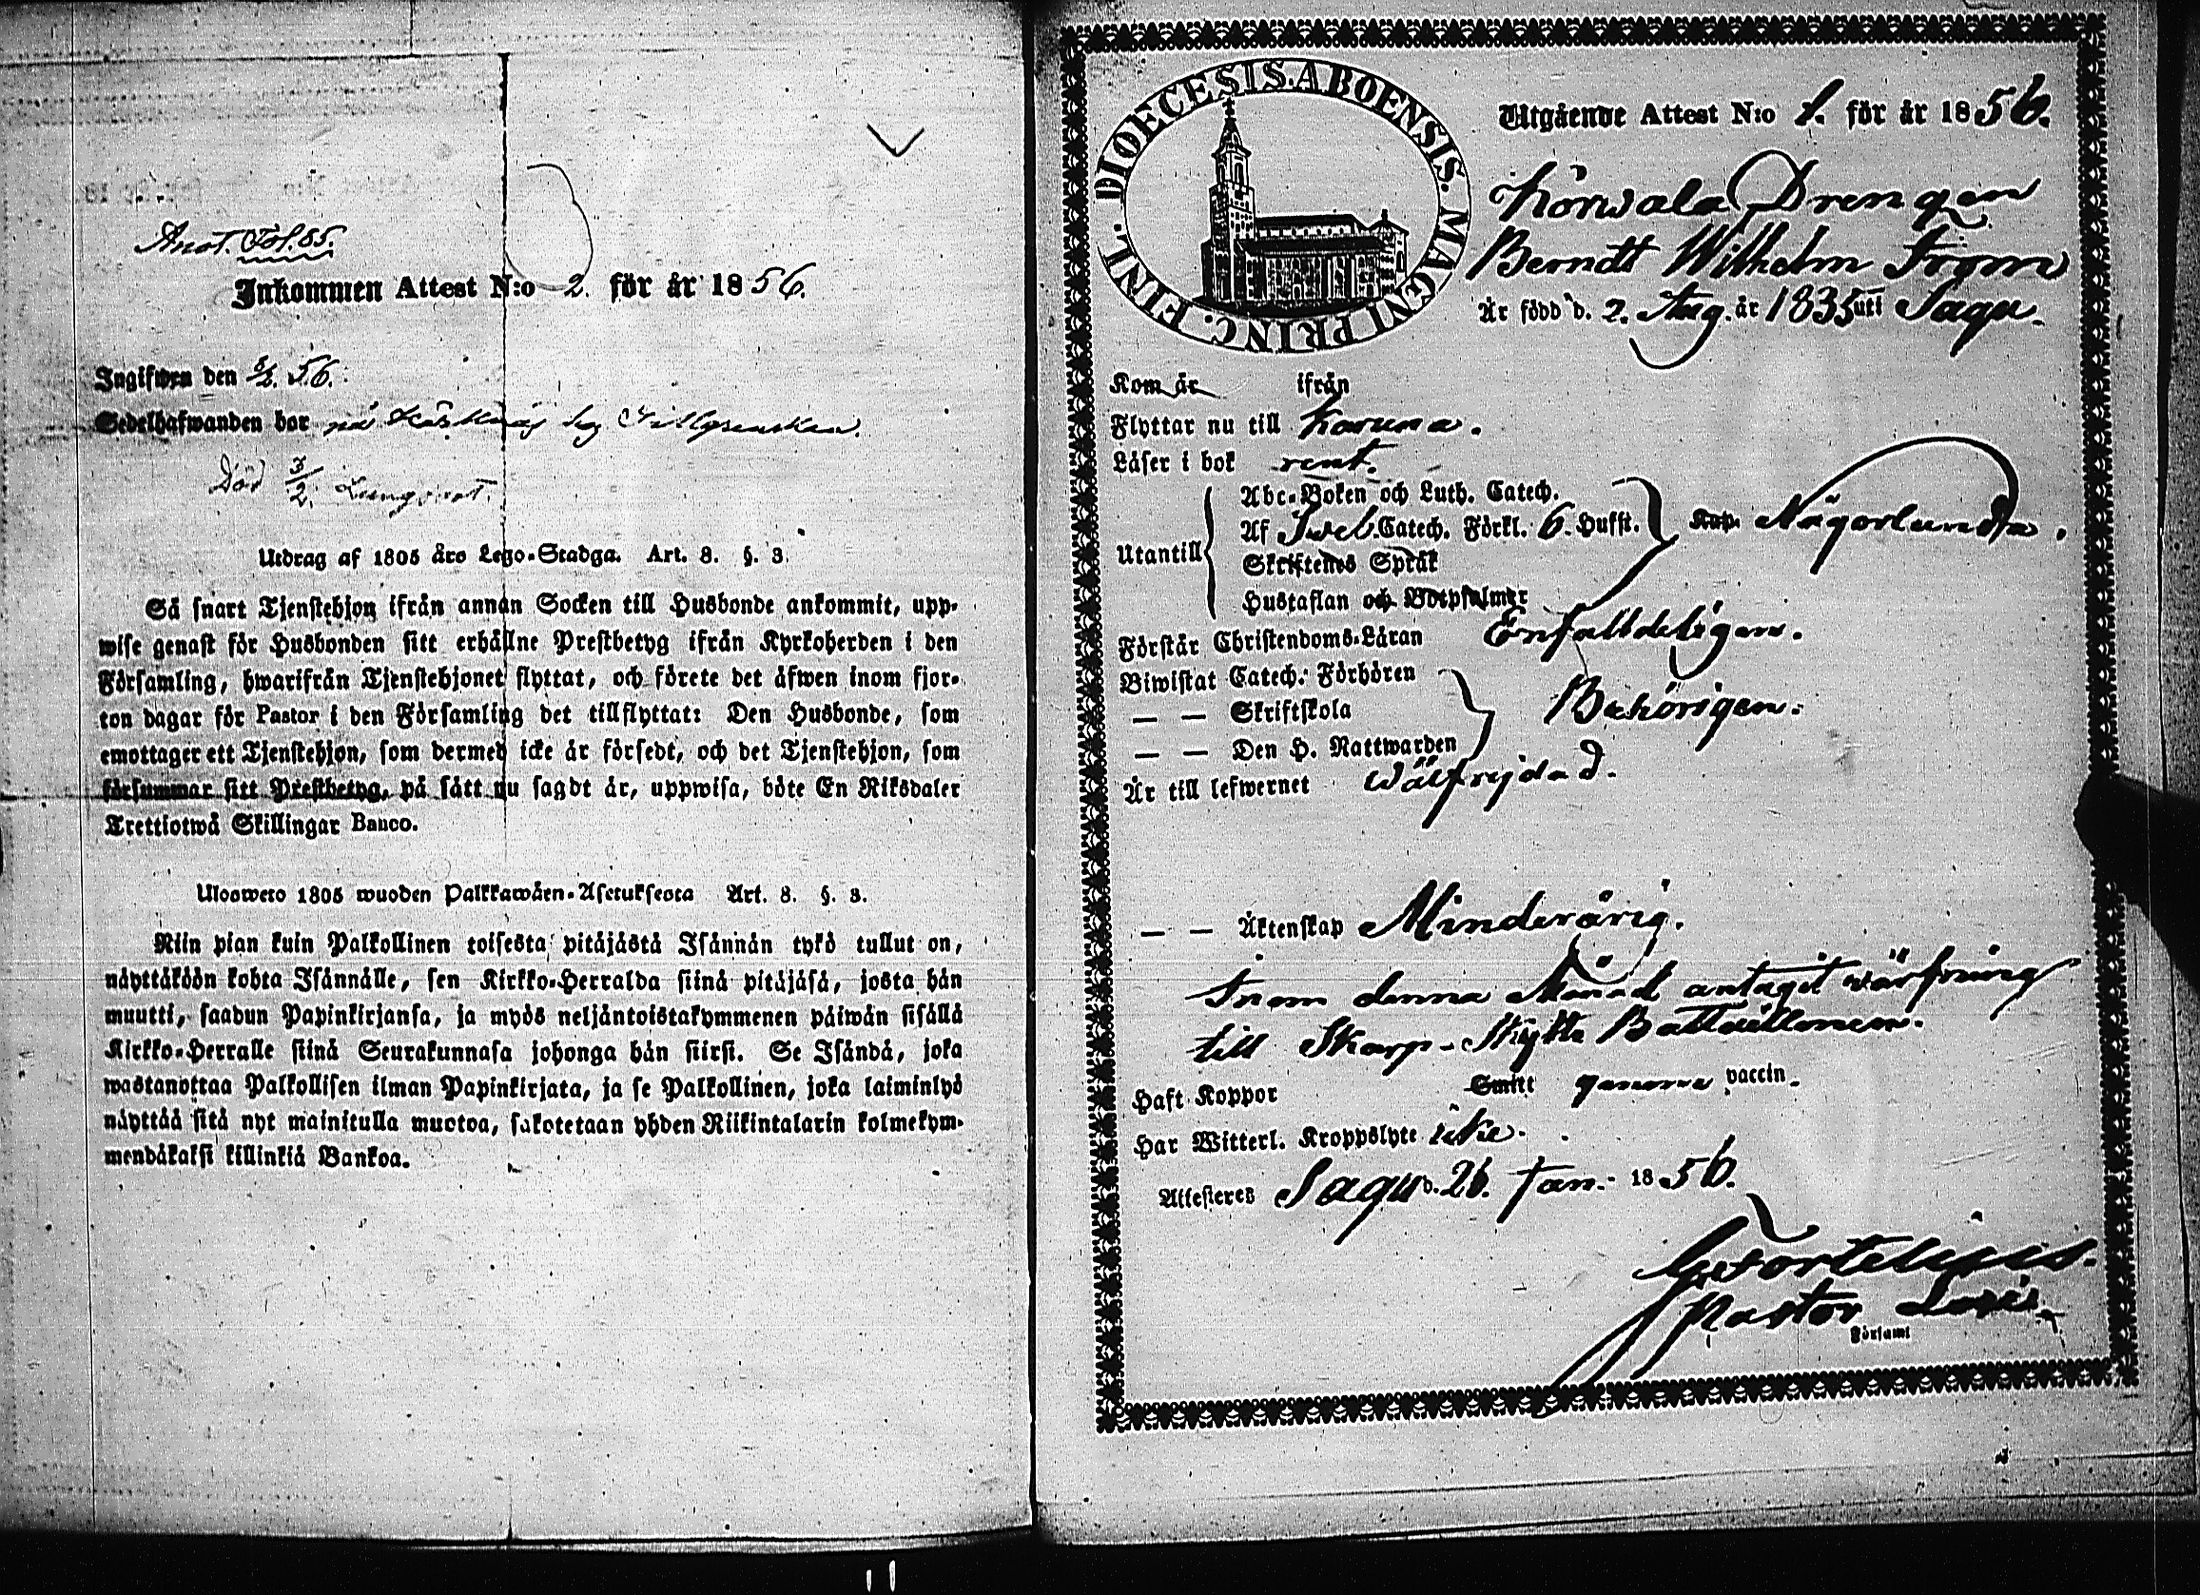 Anot. Fol. 85.
Inkommen Attest N:o 2. för år 1856.
Ingifwen den 3/2. 56.
Sedelhafwanden bor på hos
Död 3/2.
Utdrag af 1805 års Lego-Stadga. Art. 8. §. 3.
Så snart Tjenstehjon ifrån annan Socken till Husbonde ankommit, upp-
wise genast för Husbonden sitt erhållne Prestbetyg ifrån Kyrkoherden i den
Församling, hwarifrån Tjenstehjonet flyttat, och förete det äfwen inom fjor-
ton dagar för Pastor i den Församling det tillflyttat: Den Husbonde, som
emottager ett Tjenstehjon, som dermed icke är försedt, och det Tjenstehjon, som
försummar sitt Prestbetyg, på sätt nu sagdt är, uppwisa, böte En Riksdaler
Trettiotwå Skillingar Banco.
Ulosweto 1805 wuoden Palkkawäen-Asetuksesta Art. 8. §. 3.
Niin pian kuin Palkollinen toisesta pitäjästä Isännän tykö tullut on,
näyttäköön kohta Isännälle, sen Kirkko-Herralda siinä pitäjäsä, josta hän
muutti, saadun Papinkirjansa, ja myös neljäntoistakymmenen päiwän sisällä
Kirkko-Herralle siinä Seurakunnasa johonga hän siirsi. Se Isändä, joka
wastanottaa Palkollisen ilman Papinkirjata, ja se Palkollinen, joka laiminlyö
näyttää sitä nyt mainitulla muotoa, sakotetaan yhden Riikintalarin kolmekym-
mendäkaksi killinkiä Bankoa.
DIOECESIS. ABOENSIS. MAGNI PRINC. FINL.
Utgående Attest N:o 1. för år 1856.
Körwala Drengen
Berndt Wilhelm From
Är född d. 2. Aug. år 1835 uti Sagu.
Kom år ifrån
Flyttar nu till Karuna.
Läser i bok rent.
Utantill
Abc-Boken och Luth. Catech.
Af Sweb. Catech. Förkl. 6. Hufst. Någorlunda.
Skriftenes Språk
Hustaflan och Botpsalmer
Förstår Christendoms-Läran Enfaldeligen.
Biwistat Catech. Förhören
— — Skriftskola Behörigen.
— — Den H. Nattwarden
Är till lefwernet wälfrejdad.
— — Äktenskap Minderårig.
Inom denna Månad antagit wärfning
till Skarp-Skytte Bataillonen.
Haft Koppor Smitt genom vaccin.
Har Witterl. Kroppslyte icke.
Attesteres Sagu d. 26. Jan. 1856.
G. Fortelius.
Pastor Loci.
Församl